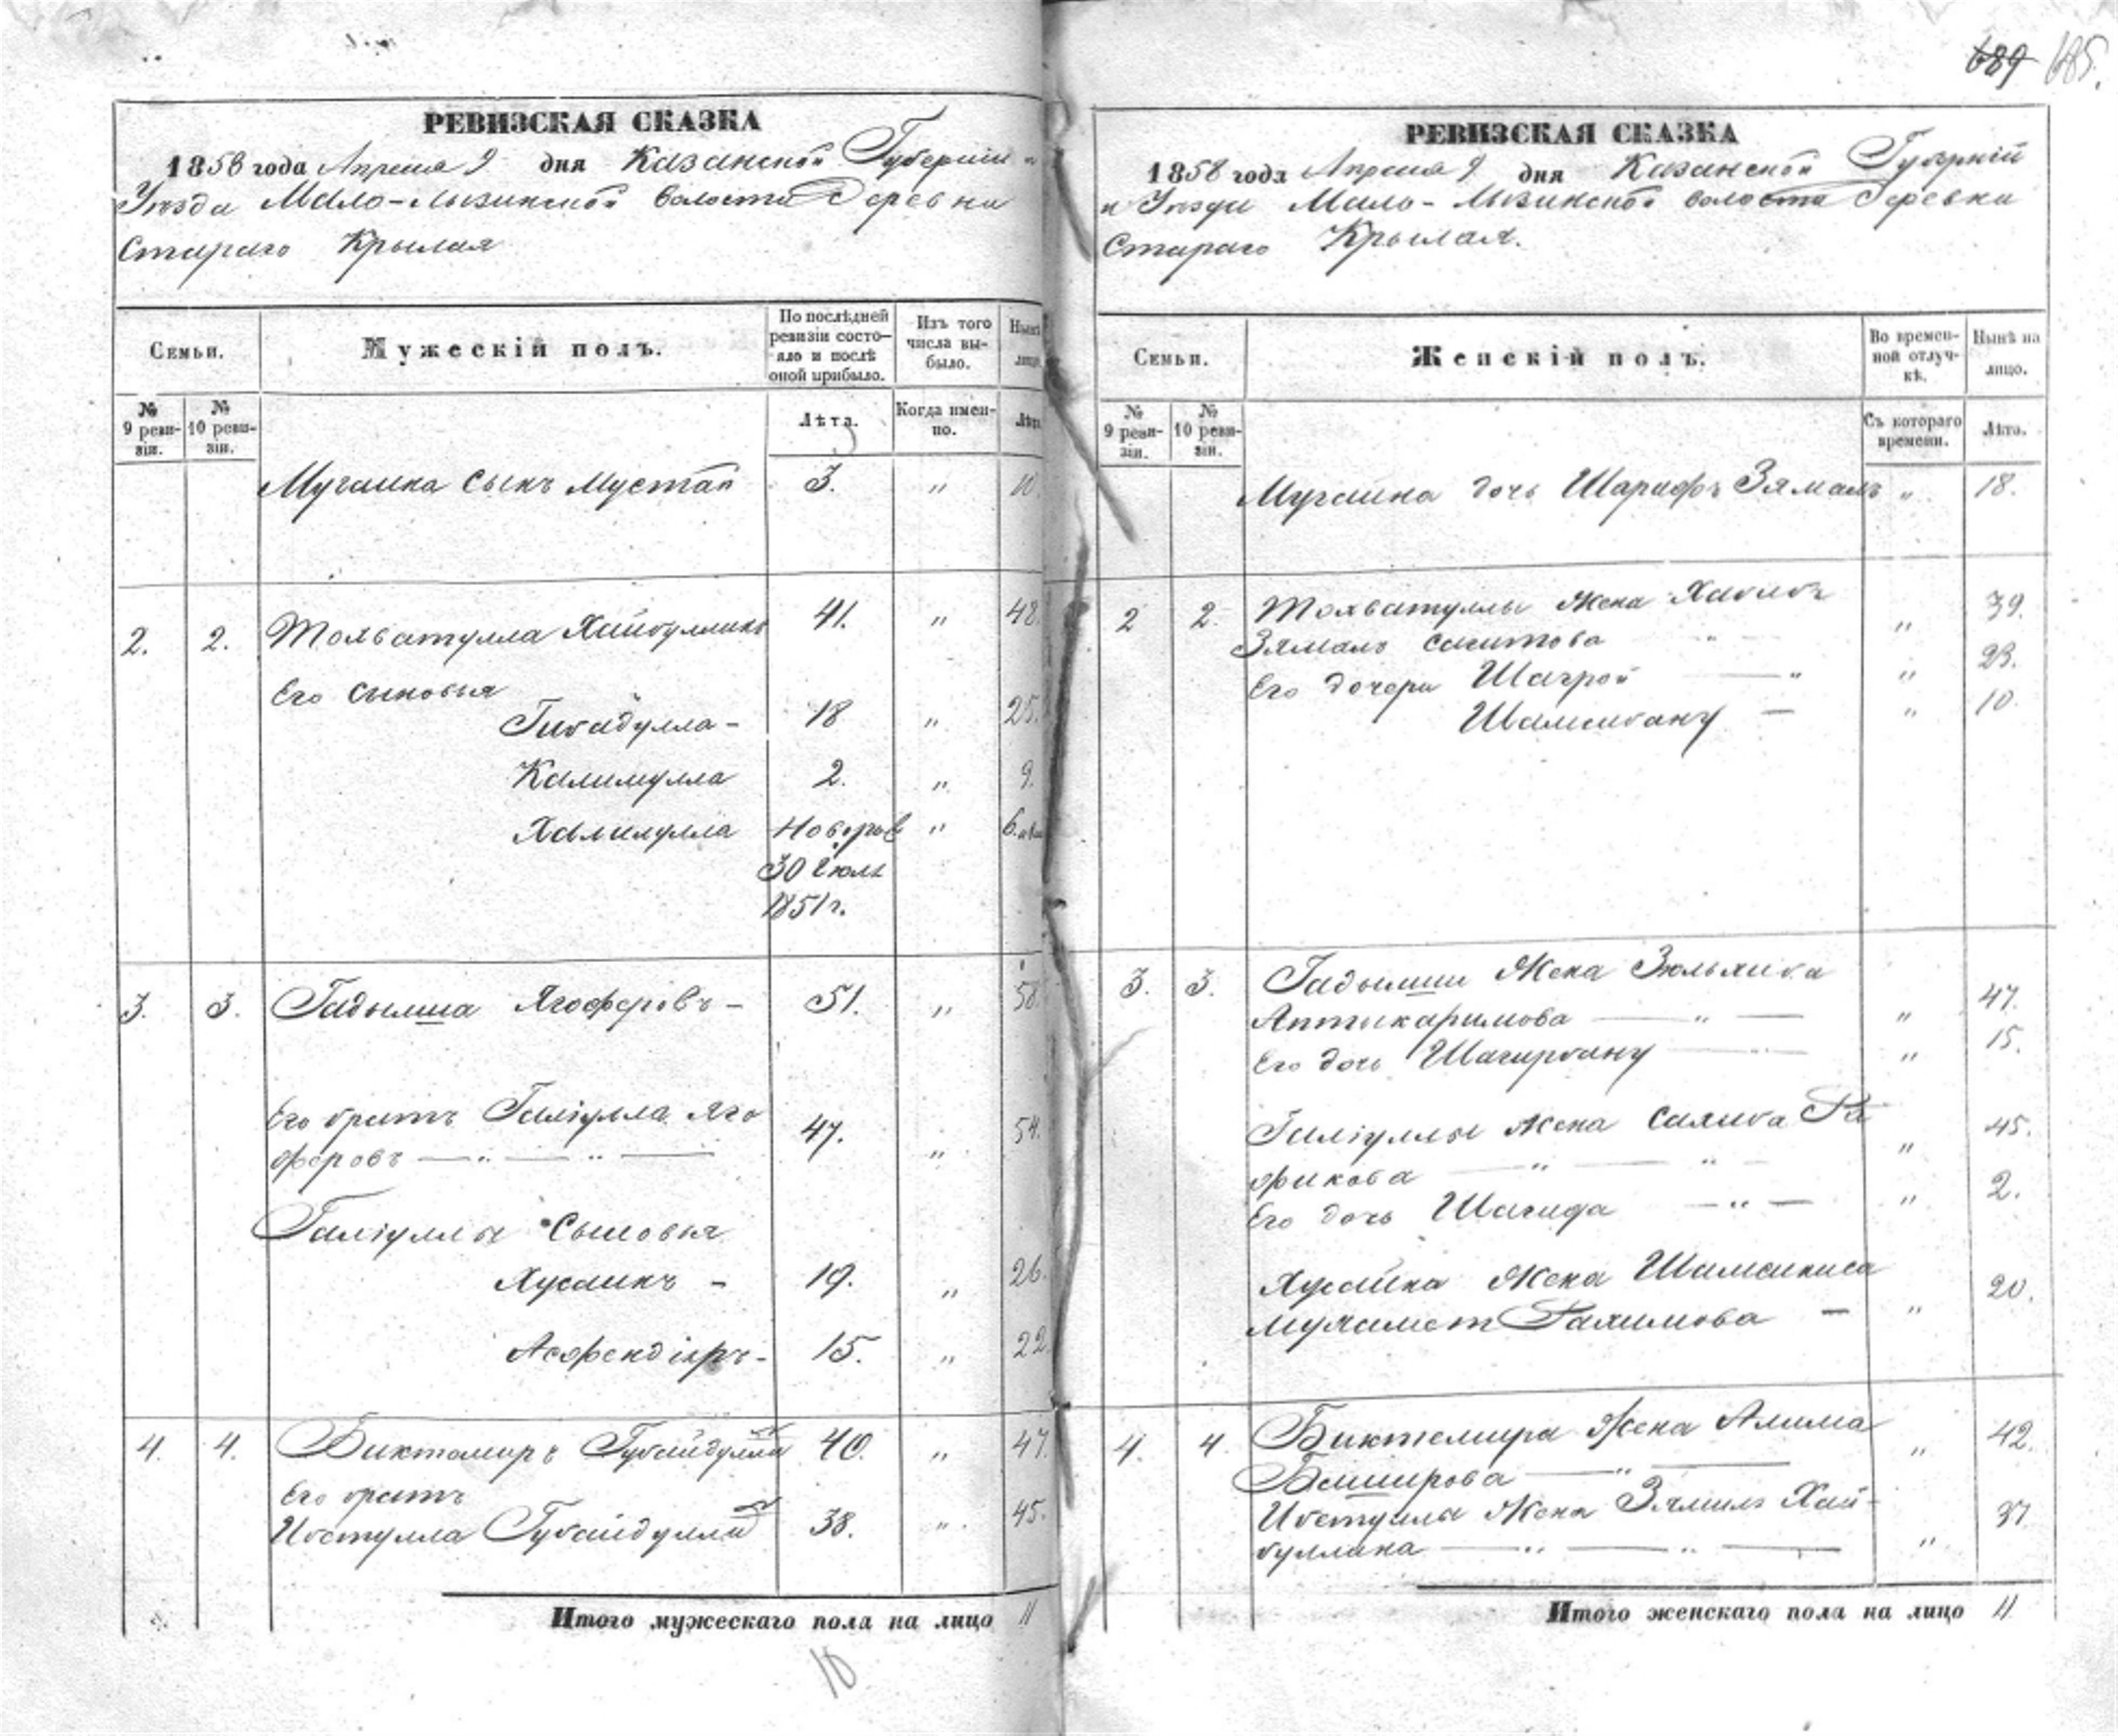 689 685.
РЕВИЗСКАЯ СКАЗКА
1858 года Апреля 9 дня Казанской Губерніи и
Уезда Мало-Лызинской волости Деревни
Стараго Крылая
Семьи.
Мужескій полъ.
По послѣдней ревизіи состо-
яло и послѣ оной прибыло.
Изъ того числа вы-
было.
Нынѣ лицо.
№ 9 реви-
зіи.
№ 10 реви-
зіи.
Лѣта.
Когда имен-
но.
Лѣта
Мугаина сынъ Мустаѣ 3. " 10
2. 2. Тохватулла Хайбуллинъ 41. " 48.
Его сыновья
Гибадулла - 18 " 25.
Калимулла 2. " 9.
Халилулла Новорож " 6.
30 Июля
1851 г.
3. 3. Гадылша Ягоферовъ - 51. " 58.
Его братъ Галіулла Яго
феровъ — " — " — 47. " 54.
Галіуллы Сыновья
Хусаинъ - 19. " 26.
Асфендіяръ - 15. " 22.
4. 4. Биктемиръ Губайдуллинъ 40. " 47.
Его братъ
Ибетулла Губайдуллинъ 38. " 45.
Итого мужескаго пола на лицо 11
10
РЕВИЗСКАЯ СКАЗКА
1858 года Апреля 9 дня Казанской Губерніи
и Уезда Мало-Лызинской волости Деревни
Стараго Крылая.
Семьи.
Женскій полъ.
Во времен-
ной отлуч-
кѣ.
Нынѣ на лицо.
№ 9 реви-
зіи.
№ 10 реви-
зіи.
Съ котораго времени.
Лѣта.
Мугаина дочь Шарифъ Зямалъ " 18.
2 2. Тохватуллы Жена Хабибъ
Зямалъ Сагитова " " 39.
Его дочери Шагрой — " " 23.
Шамсибану — " 10.
3. 3. Гадылши Жена Зюльхиба
Аптикаримова — " — " 47.
Его дочь Шагирбану — " — " 15.
Галіуллы Жена Салиба Ра
фикова — " — " — " 45.
Его дочь Шагида — " — " 2.
Хусаина Жена Шамсиниса
Мухамет Рахимова — " 20.
4. 4. Биктемира Жена Алима
Баширова — " — " 42.
Ибетуллы Жена Зямилъ Хай-
буллина — " — " — " 37.
Итого женскаго пола на лицо 11.